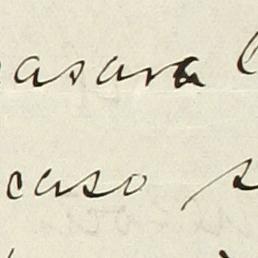 pasara
caso s